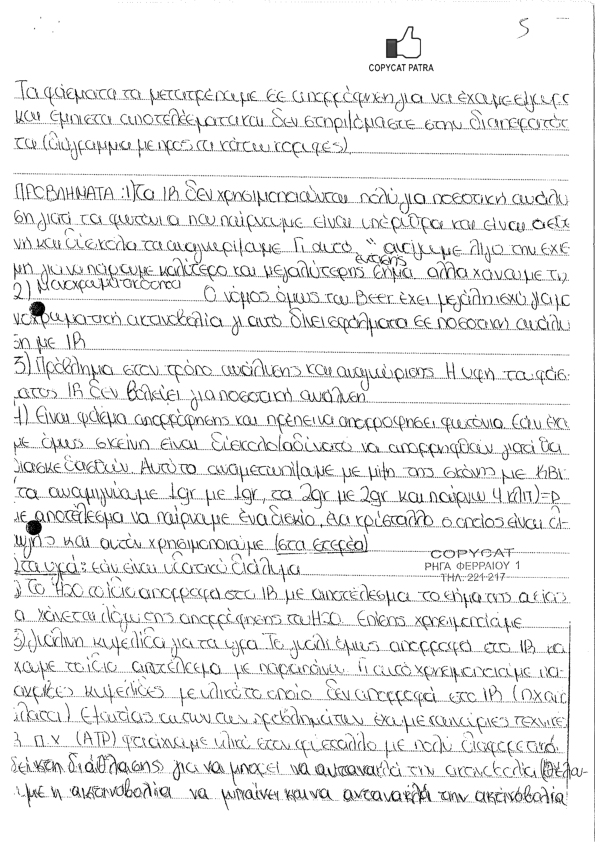 5
COPYCAT PATRA
Τα φάσματα τα μετατρέπουμε σε απορρόφηση για να έχουμε έγκυρα
και έμπιστα αποτελέσματα και δεν στηριζόμαστε στην διαπερατότη
τα (διάγραμμα με προς τα κάτω κορυφές)
ΠΡΟΒΛΗΜΑΤΑ: 1) Τα IR δεν χρησιμοποιούνται πολύ για ποσοτική ανάλυ
ση γιατί τα φωτόνια που παίρνουμε είναι υπέρυθρα και είναι
και δύσκολα τα ανιχνεύουμε Γι αυτό ανοίγουμε λίγο την σχι
μη για να πάρουμε καλύτερο και μεγαλύτερης έντασης σήμα αλλά χάνουμε τη
2) Μονοχρωματικότητα Ο νόμος όμως του Beer έχει μεγάλη ισχύ για μο
νοχρωματική ακτινοβολία γι αυτό δίνει σφάλματα σε ποσοτική ανάλυ
ση με IR
3) Πρόβλημα στον τρόπο ανάλυσης και ανίχνευσης Η υφή του φάσμ
ατος IR δεν βολεύει για ποσοτική ανάλυση
4) Είναι φάσμα απορρόφησης και πρέπει να απορροφήσει φωτόνια. Εάν έχου
με όμως σκόνη είναι δύσκολο/αδύνατο να απορροφηθούν γιατί θα
διασκεδασθούν. Αυτό το αντιμετωπίζουμε με μίξη της σκόνης με KBr
τα αναμιγνύουμε 1gr με 1gr, τα 2gr με 2gr και παίρνω 4 κλπ) =>
με αποτέλεσμα να παίρνουμε ένα δισκίο, ένα κρύσταλλο ο οποίος είναι δι
αυγής και αυτόν χρησιμοποιούμε (στα στερεά)
COPYCAT
ΡΗΓΑ ΦΕΡΡΑΙΟΥ 1
ΤΗΛ. 221-217
στα υγρά: εάν είναι υδατικό διάλυμα
Το H2O το ίδιο απορροφά στο IR με αποτέλεσμα το σήμα της ουσίας
να χάνεται λόγω της απορρόφησης του H2O. Επίσης χρησιμοποιούμε
γυάλινη κυψελίδα για τα υγρά. Το γυαλί όμως απορροφά στο IR και
έχουμε το ίδιο αποτέλεσμα με παραπάνω. Γι αυτό χρησιμοποιούμε πα
ακριβές κυψελίδες με υλικό το οποίο δεν απορροφά στο IR
Εξαιτίας αυτών των προβλημάτων έχουμε καινούριες τεχνικές
π.χ (ATR) φτιάχνουμε υλικό στον κρύσταλλο με πολύ διαφορετικό
δείκτη διάθλασης για να μπορεί να αντανακλά την ακτινοβολία (θέλου-
με η ακτινοβολία να μπαίνει και να αντανακλά την ακτινοβολία